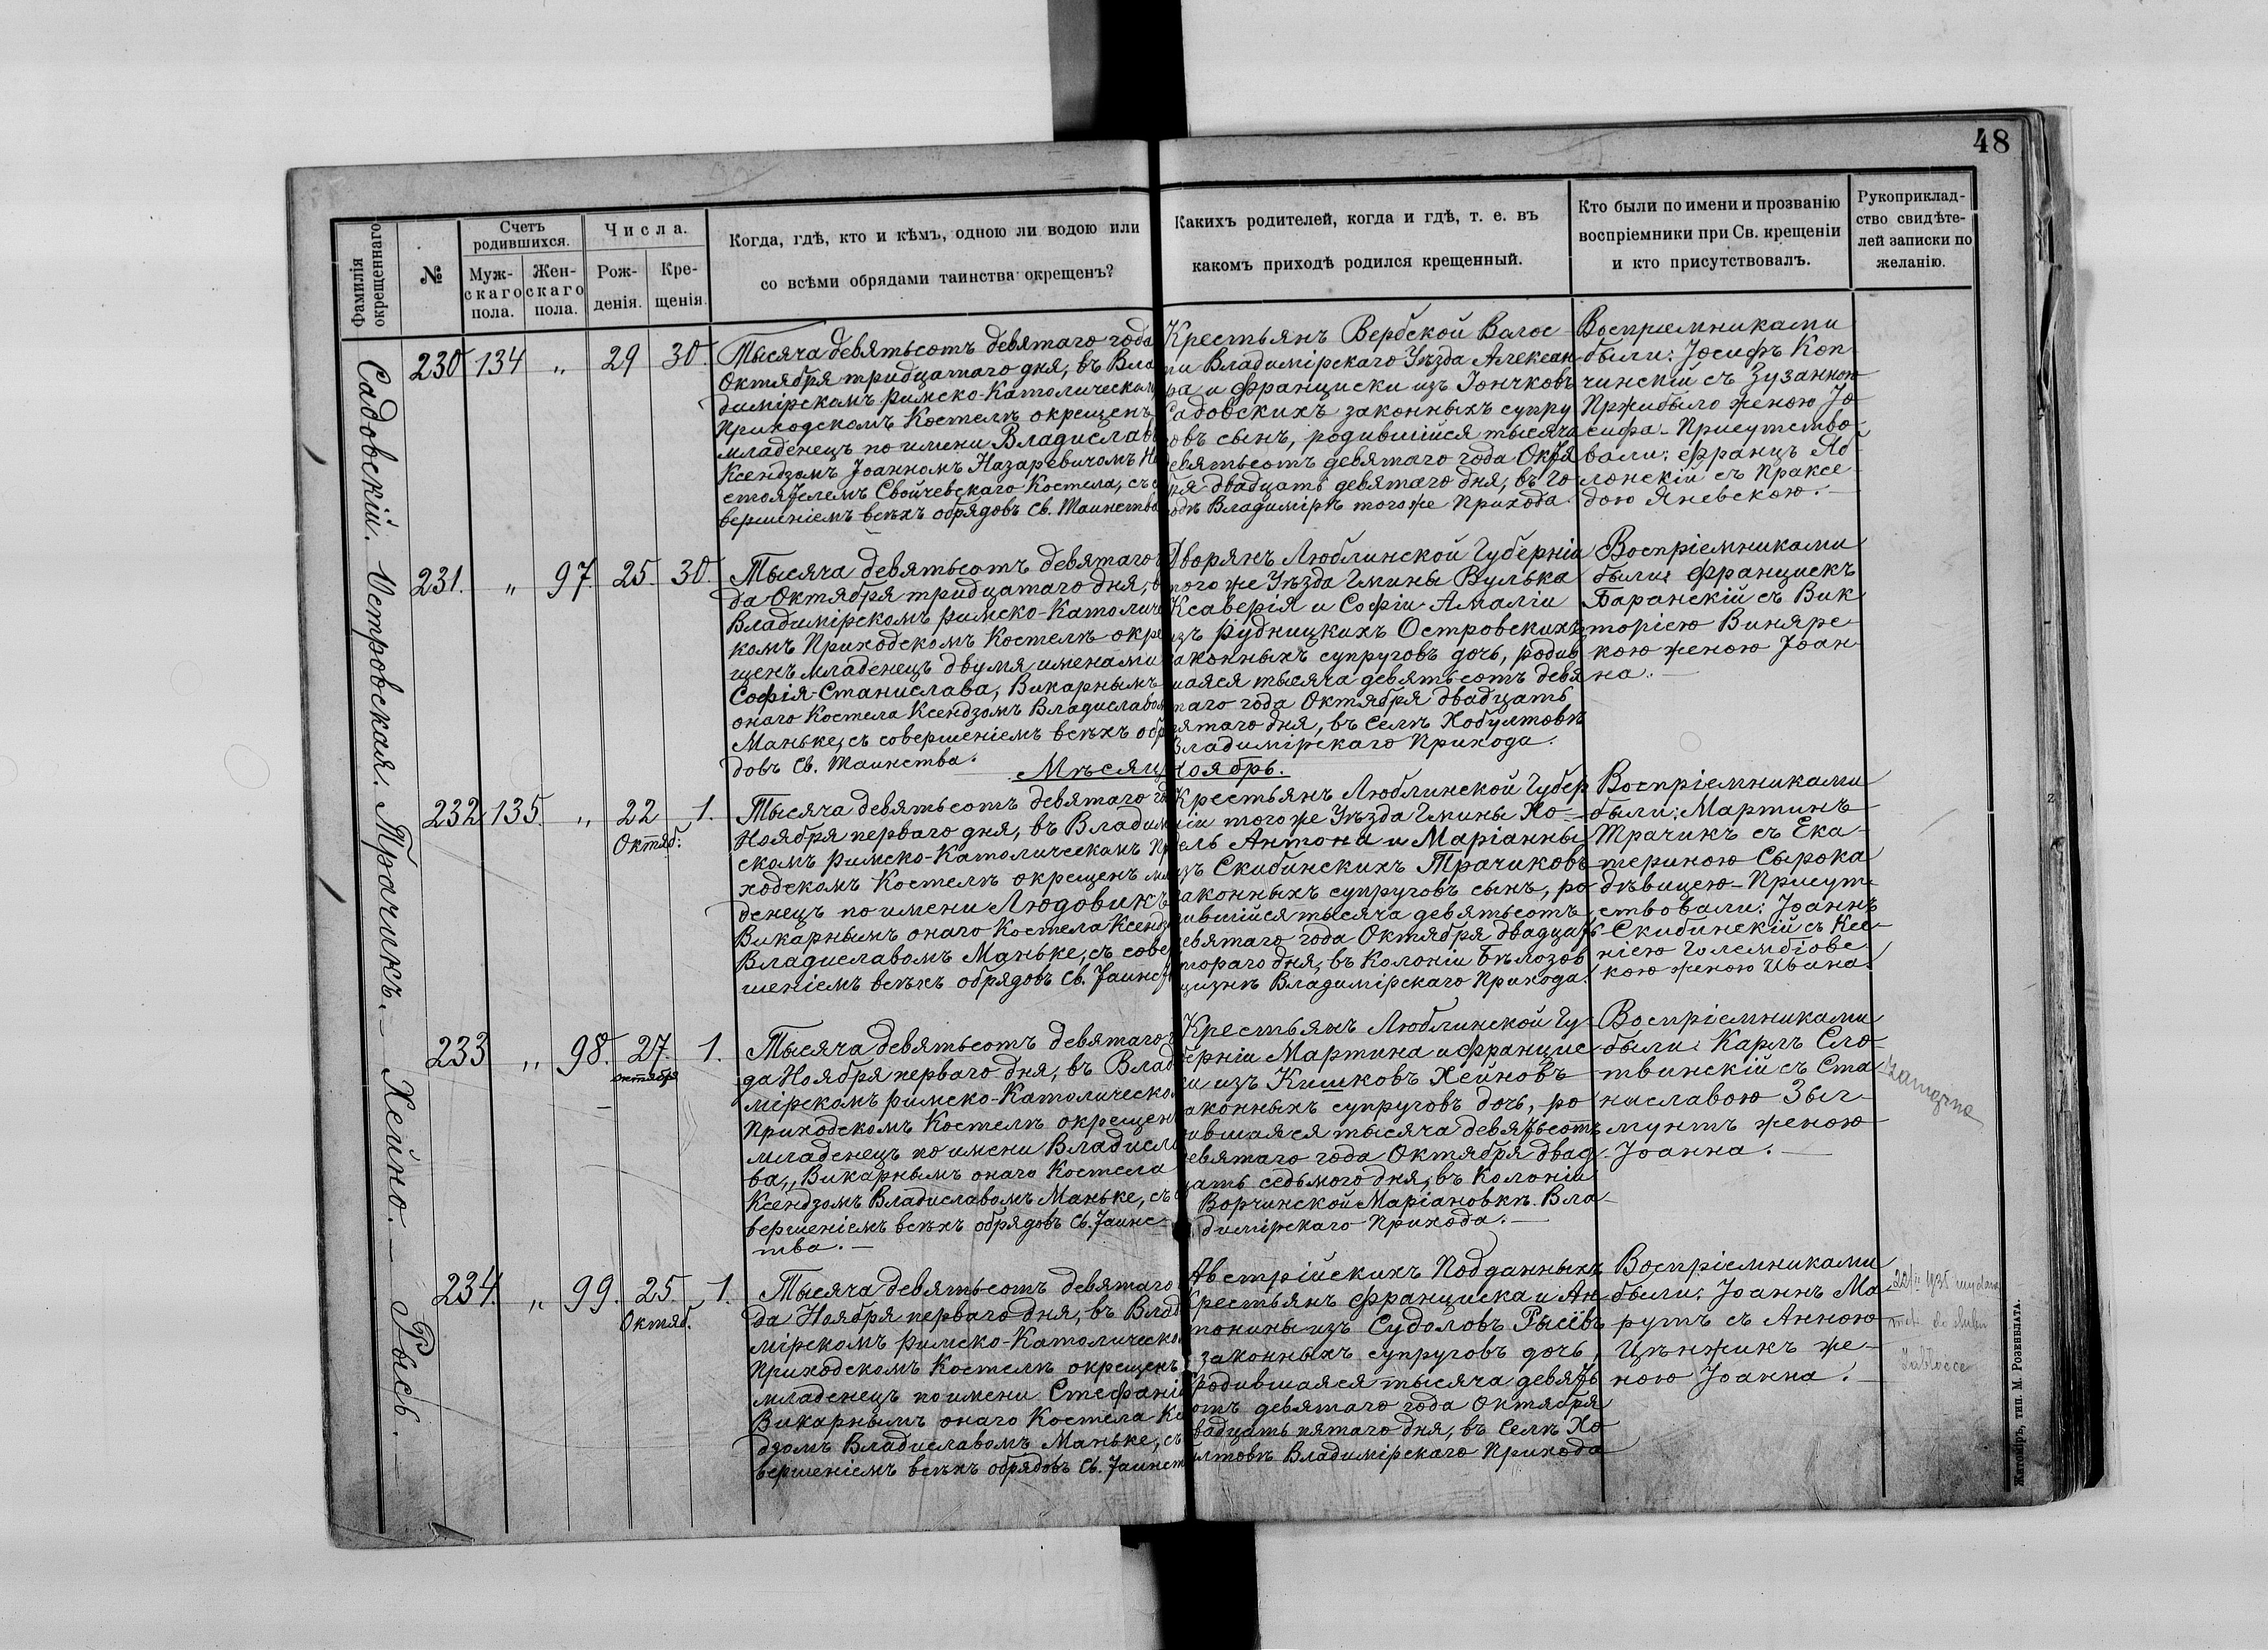 48
Фамилія окрещеннаго
№
Счетъ родившихся.
Муж-
скаго
пола.
Жен-
скаго
пола.
Числа.
Рож-
денія.
Кре-
щенія.
Когда, гдѣ, кто и кѣмъ, одною ли водою или
со всѣми обрядами таинства окрещенъ?
Какихъ родителей, когда и гдѣ, т. е. въ
какомъ приходѣ родился крещенный.
Кто были по имени и прозванію
воспріемники при Св. крещеніи
и кто присутствовалъ.
Рукоприклад-
ство свидѣте-
лей записки по
желанію.
Садовскій.
230 134 „ 29 30.
Тысяча девятьсотъ девятаго года
Октября тридцатаго дня, въ Вла
димірскомъ Римско-Католическомъ
Приходскомъ Костелѣ окрещенъ
младенецъ по имени Владиславъ
Ксендзомъ Іоанномъ Назаревичомъ На
стоятелемъ Свойчевскаго Костела, съ со
вершеніемъ всѣхъ обрядовъ Св. Таинства
Крестьянъ Вербской Волос-
ти Владимірскаго Уѣзда Алексан
ра и Франциски изъ Іончковъ
Садовскихъ законныхъ супру
овъ сынъ, родившійся тысяча
евятьсотъ девятаго года Октя
бря двадцать девятаго дня, въ Го
одѣ Владимірѣ того же Прихода.
Воспріемниками
были: Іосифъ Коп
чинскій съ Зузанною
Пржибыло женою Іо
сифа - Присутство-
вали: Францъ Яб
лонскій съ Праксе
дою Яневскою. -
Островская.
231. „ 97. 25. 30.
Тысяча девятьсотъ девятаго
да Октября тридцатаго дня, въ
Владимірскомъ Римско-Католичес
комъ Приходскомъ Костелѣ окре
щенъ младенецъ двумя именами
Софія-Станислава, Викарнымъ
онаго Костела Ксендзомъ Владиславом
Маньке, съ совершеніемъ всѣхъ обр
довъ Св. Таинства.
Дворянъ Люблинской Губерніи
того же Уѣзда Гмины Вулька
Ксаверія и Софіи-Амаліи
изъ Рудницкихъ Островскихъ
аконныхъ супруговъ дочь, родив
шаяся тысяча девятьсотъ девя
таго года Октября двадцать
пятаго дня, въ Селѣ Хобултовѣ
Владимірскаго Прихода.
Воспріемниками
были: Францискъ
Баранскій съ Вик
торіею Винярс
кою женою Іоан
на. -
Мѣсяцъ Ноябрь.
Трачикъ. -
232 135. „ 22 Октяб. 1.
Тысяча девятьсотъ девятаго го
Ноября перваго дня, въ Владимі
скомъ Римско-Католическомъ При
ходскомъ Костелѣ окрещенъ мла
денецъ по имени Людовикъ
Викарнымъ онаго Костела Ксендз
Владиславомъ Маньке, съ совер
шеніемъ всѣхъ обрядовъ Св. Таинст
Крестьянъ Люблинской Губер
ніи того же Уѣзда Гмины Хо-
дель Антона и Маріанны
изъ Скибинскихъ Трачиковъ
аконныхъ супруговъ сынъ, ро
дившійся тысяча девятьсотъ
евятаго года Октября двадцать
втораго дня, въ Колоніи Бѣлозов
щизнѣ Владимірскаго Прихода.
Воспріемниками
были: Мартинъ
Трачикъ съ Ека-
териною Сырока
дѣвицею - Присут-
ствовали: Іоаннъ
Скибинскій съ Ксе-
ніею Голембіовс
кою женою Ивана.
Хейно. -
233 „ 98. 27. октября 1.
Тысяча девятьсотъ девятаго
да Ноября перваго дня, въ Влад
мірскомъ Римско-Католическо
Приходскомъ Костелѣ окрещен
младенецъ по имени Владисла
ва, Викарнымъ онаго Костела
Ксендзомъ Владиславомъ Маньке, съ
вершеніемъ всѣхъ обрядовъ Св. Таинс
тва. -
Крестьянъ Люблинской Гу-
берніи Мартина и Францис
ки изъ Кишковъ Хейновъ
аконныхъ супруговъ дочь, ро
дившаяся тысяча девятьсотъ
евятаго года Октября двад
цать седьмого дня, въ Колоніи
Ворчинской Маріановкѣ Вла-
димірскаго Прихода. -
Воспріемниками
были: Карлъ Сло-
твинскій съ Ста
ниславою Зыг-
мунтъ женою
Іоанна. -
Рысь. -
234. „ 99. 25. Октяб. 1.
Тысяча девятьсотъ девятаго
да Ноября перваго дня, въ Влад
мірскомъ Римско-Католическо
Приходскомъ Костелѣ окрещенъ
младенецъ по имени Стефанія
Викарнымъ онаго Костела Ксе
дзомъ Владиславомъ Маньке, съ
вершеніемъ всѣхъ обрядовъ Св. Таинст
Австрійскихъ Подданныхъ
Крестьянъ Франциска и Ан-
тонины изъ Судоловъ Рысівъ
законныхъ супруговъ дочь,
родившаяся тысяча девять
отъ девятаго года Октября
вадцать пятаго дня, въ Селѣ Хо
ултовѣ Владимірскаго Прихода
Воспріемниками
были: Іоаннъ Ма
рутъ съ Анною
Цѣнжикъ же-
ною Іоанна. -
Житоміръ, тип. М. Розенблата.